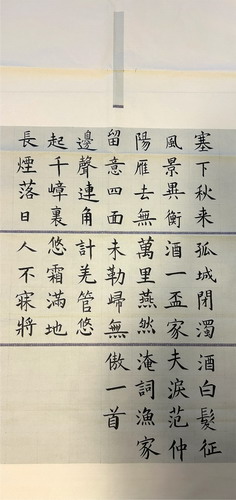 塞下秋来
風景異衡
陽雁去無
留意四面
邊聲連角
起千嶂裏
長煙落日
孤城閉濁
酒一盃家
萬里燕然
未勒歸無
計羌管悠
悠霜滿地
人不寐將
酒白髮征
夫淚范仲
淹詞漁家
傲一首